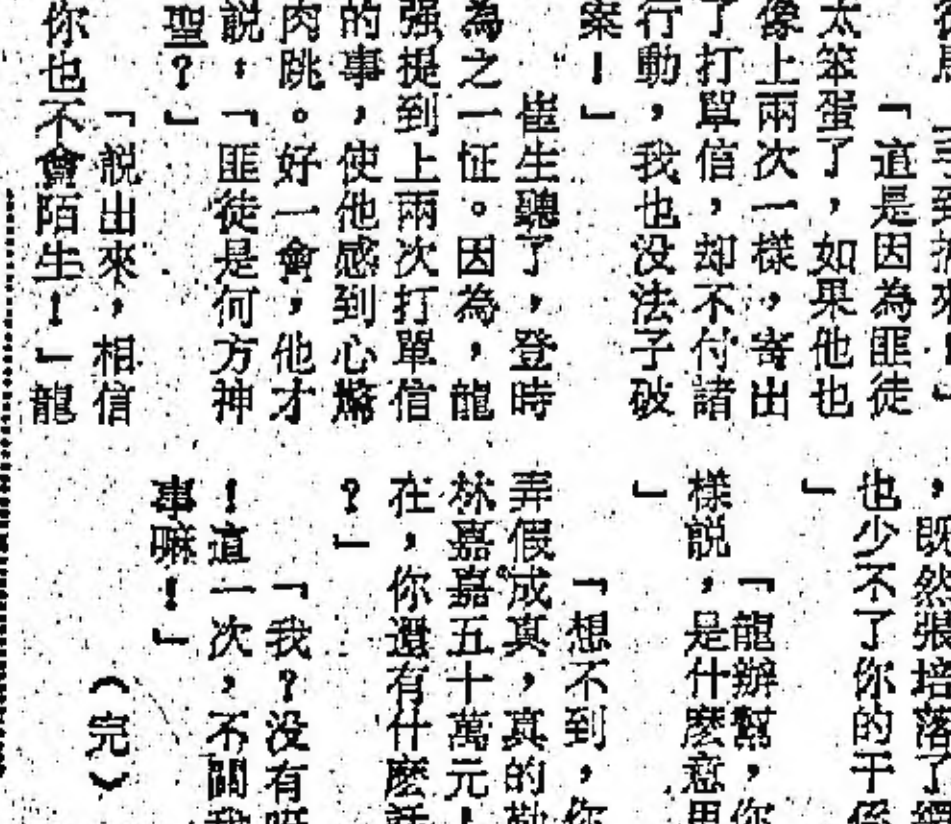 「這是因為匪徒
太笨蛋了，如果他也
像上兩次一樣，寄出
了打單信，却不付諸
行動，我也没法子破
案！」
崔生聽了，登時
為之一怔。因為，龍
强提到上兩次打單信
的事，使他感到心驚
肉跳。好一會，他才
説：「匪徒是何方神
聖？」
「説出來，相信
你也不會陌生！」龍
，既然張培落了
也少不了你的干係
」
「龍辦幫，你
樣説，是什麽意思
「想不到，你
弄假成真，真的勒
林嘉嘉五十萬元！
在，你還有什麽話
？」
「我？没有
！這一次，不關我
事嘛！」
（完）